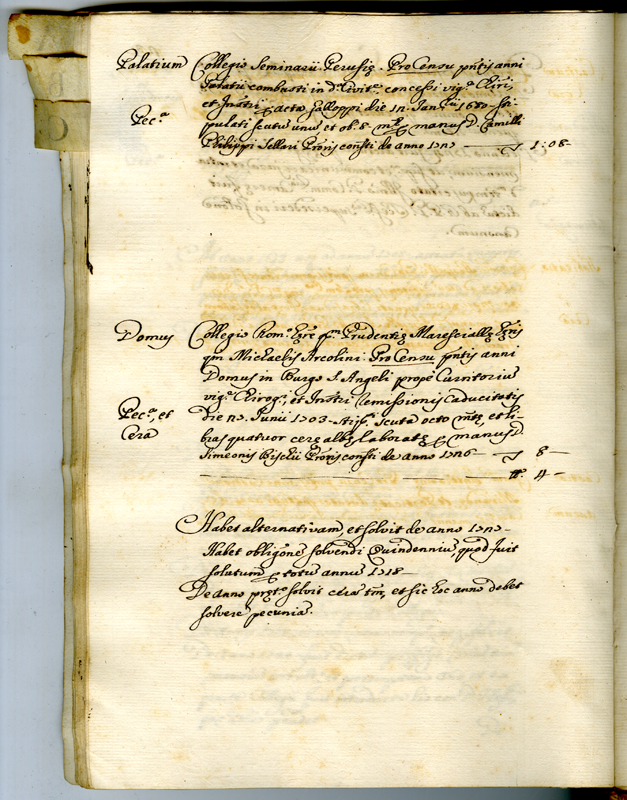 Palatium Collegio Seminarii Perusię. Pro Censu pńtis anni
Palatii combusti in d.ª Civit.e concessi vig.e Chiri
Pec.ª et Instri p acta Galloppi die
pulati scutu unu et ob. 8 m.tę p manus D. Camilli
Philippi Sellari Provis consti de anno 1717 — ∇ 1:08-
Domus Collegio Rom.o Hęre qm Prudentię Maresciallę Hęris
qm Michaelis Arcolini. Pro Censu pńtis anni
Domus in Burgo S. Angeli propè Curritoriu
vig.e Chirog: et Instri remissionis Caducitatis
Pec.ª, et die 17. Junii 1703. Stip. scuta octo mtę, et li-
Cera bras quatuor cerę albę laboratę p manus D.
Simeonis Provis consti de anno 1716 — ∇ 8 —
tt.e 4 —
Habet alternativam, et solvit de anno 1717 —
Habet obligõne solvendi Quindenniu, quod fuit
solutum p totu annu 1718 —
De anno pręt.o solvit cera tm, et sic hoc anno debet
solvere pecunia.